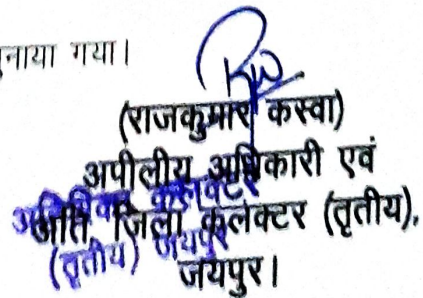 नाया गया।
(राजकुमार कस्वा)
अपीलीय अधिकारी एवं
अति जिला कलेक्टर (तृतीय),
जयपुर।
अतिरिक्त कलेक्टर
(तृतीय) जयपुर